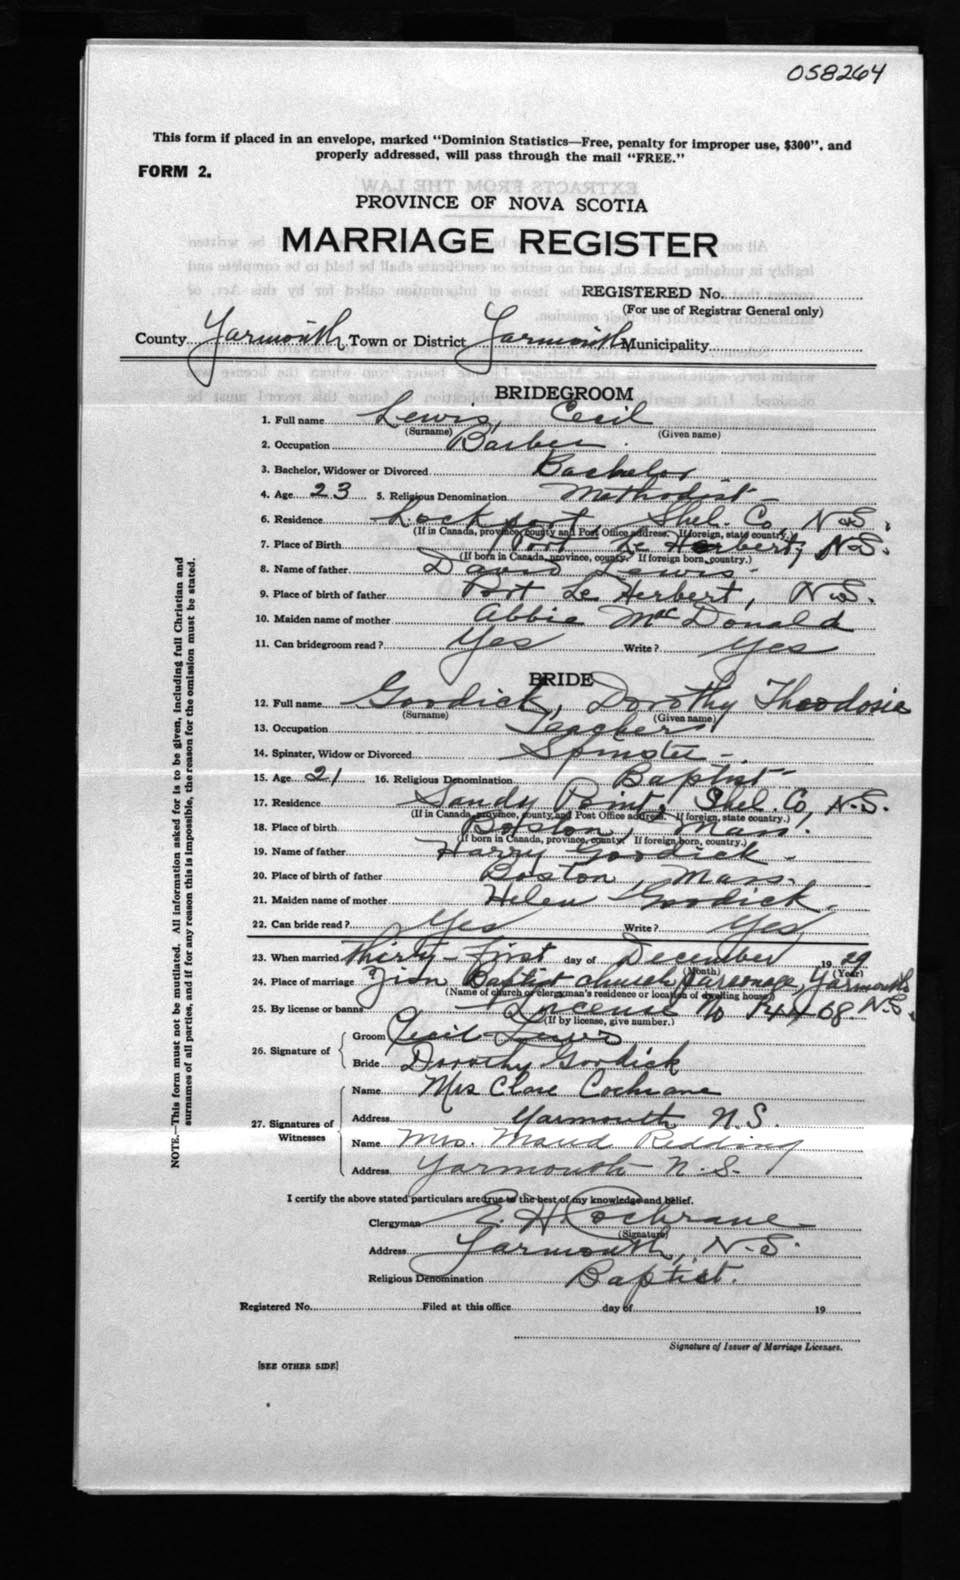 058264
This form if placed in an envelope, marked "Dominion Statistics—Free, penalty for improper use, $300", and
properly addressed, will pass through the mail "FREE."
FORM 2.
PROVINCE OF NOVA SCOTIA
MARRIAGE REGISTER
REGISTERED No.
(For use of Registrar General only)
County Yarmouth Town or District Yarmouth Municipality
BRIDEGROOM
1. Full name Lewis, Cecil
(Surname) (Given name)
2. Occupation Barber
3. Bachelor, Widower or Divorced Bachelor
4. Age 23 5. Religious Denomination Methodist
6. Residence Lockport, Shel. Co, N.S.
(If in Canada, province, county and Post Office address. If foreign, state country.)
7. Place of Birth Port Le Herbert, N.S.
(If born in Canada, province, county. If foreign born, country.)
8. Name of father David Lewis
9. Place of birth of father Port Le Herbert, N.S.
10. Maiden name of mother Abbie McDonald
11. Can bridegroom read? Yes Write? Yes
BRIDE
12. Full name Goodick, Dorothy Theodosie
(Surname) (Given name)
13. Occupation Teacher
14. Spinster, Widow or Divorced Spinster
15. Age 21 16. Religious Denomination Baptist
17. Residence Sandy Point, Shel. Co, N.S.
(If in Canada, province, county, and Post Office address. If foreign, state country.)
18. Place of birth Boston, Mass.
(If born in Canada, province, county. If foreign born, country.)
19. Name of father Harry Goodick
20. Place of birth of father Boston, Mass.
21. Maiden name of mother Helen Goodick.
22. Can bride read? Yes Write? Yes
23. When married Thirty-first day of December 1929
(Month) (Year)
24. Place of marriage Zion Baptist church parsonage, Yarmouth
(Name of church or clergyman's residence or location of dwelling house)
25. By license or banns License No N.S.
(If by license, give number.)
26. Signature of
Groom Cecil Lewis
Bride Dorothy Goodick
27. Signatures of Witnesses
Name Mrs Clare Cochrane
Address Yarmouth N.S.
Name Mrs. Maud Redding
Address Yarmouth N.S.
I certify the above stated particulars are true to the best of my knowledge and belief.
Clergyman E. H. Cochrane
(Signature)
Address Yarmouth, N.S.
Religious Denomination Baptist.
Registered No. Filed at this office day of 19
Signature of Issuer of Marriage Licenses.
[SEE OTHER SIDE]
NOTE.—This form must not be mutilated. All information asked for is to be given, including full Christian and
surnames of all parties, and if for any reason this is impossible, the reason for the omission must be stated.